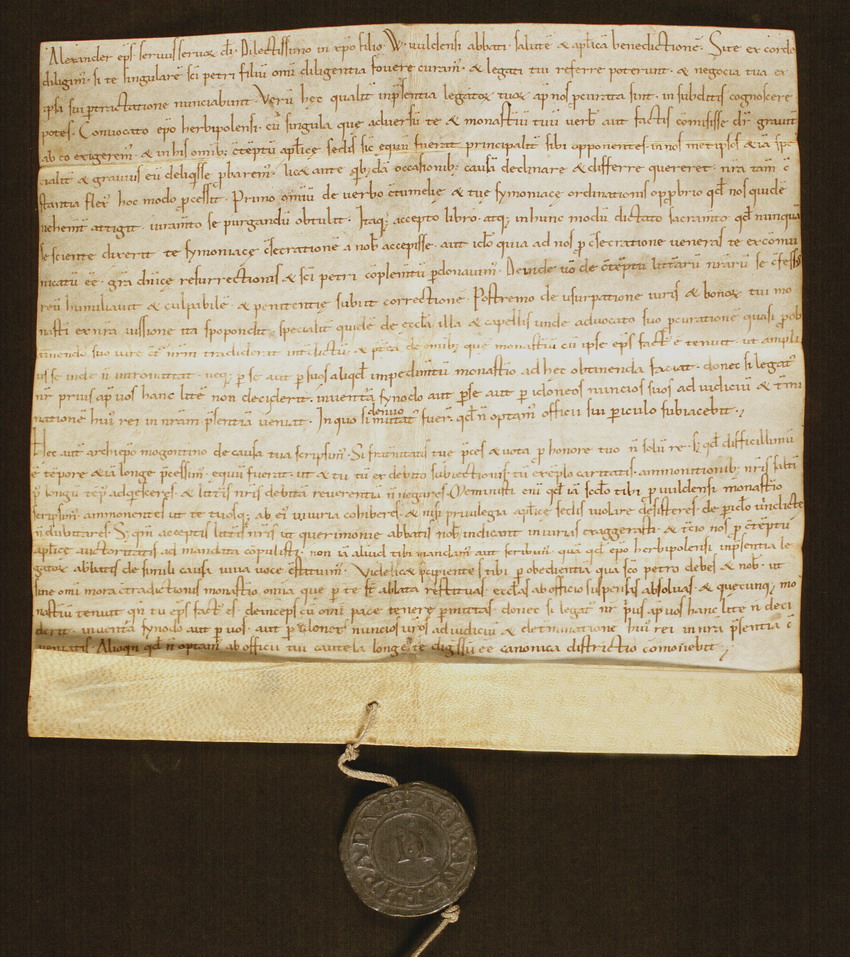 Alexander ep̄s servus servoꝝ dī. Dilectissimo in xp̄o filio .W. vuldensi abbati salutē & aplicā benedictionē. Si te ex corde
diligim᷒. si te singularē sc̄i petri filiū omī diligentia fovere curam᷒. & legati tui referre poterunt. & negocia tua ex
ipsa sui ptractatione nunciabunt. Verū hec qualit in psentia legatoꝝ tuoꝝ ap nos pcurata sint. in subditis cognoscere
potes. Convocato epo herbipolensi. cū singula que adversū te & monastiū tuū verb aut factis cōmisisse
ab eo exigerem᷒. & in his omib; c̄tēptū aplicę sedis sic equū fuerat principalit sibi opponentes.
cialit & gravius eū deliqsse pbarem᷒. licꝫ ante qb;dā occasionib; causā declinare & differre quereret. nrā tam̄ c̄
stantia flex hoc modo pcessit. Primo omiū de verbo c̄tumelię & tuę symoniacę ordinationis opprobrio qđ nos quidē
vehemt attigit. iuram̄to se purgandū obtulit. Itaq; accepto libro. atq; in hunc modū dictato sacram̄to qđ nunquā
se sciente dixerit te symoniacę c̄secrationē a nob accepisse. aut ido quia ad nos p c̄secratione veneras te excōmu
nicatū eē. grā dn̄icę resurrectionis & sc̄i petri cōplem̄tū pdonavim᷒. Deinde vo de c̄tēptu littarū nrarū se c̄fess
reū humiliavit & culpabilē. & penitentię subiit correctionē. Postremo de usurpatione iuris & bonoꝝ tui mo
nasti ita spopondit. specialit quidē de ecclā illa & capellis unde advocato suo pcurationē quasi
suo iure c̄t nrm tradiderit int̄dictū. & p̄t̄ea de omib; que monastiū cū ipse ep̄s fact ē tenuit. ut ampli
us se inde n̄ intromittat. neq; p se aut p suos aliqđ impedim̄tū monastio ad hec obtinenda faciat. donec si legat᷒
nr̄ prius ap vos hanc litē non deciderit. inventa synodo aut p se aut p idoneos nuncios suos ad iudiciū & t̄mi
nationē hui᷒ rei in nrām p̄sentiā veniat. In quo si denuo inmutat fuer. qđ n̄ optam᷒. officii sui piculo subiacebit.
Hec aut archiepo mogontino de causa tua scripsim᷒. Si frat̄nitatis tuę pces & vota p honore tuo n̄ solū re. sꝫ qđ difficillimū
ē tēpore & iā longe pcessim᷒. equū fuerat. ut & tu tū ex debito subiectionis tū exēplo caritatis. ammonitionib; nris saltī
p longū tēp adqesceres. & littis nris debitā reverentiā n̄ negares. Meministi enī qđ iā sedo tibi p vuldensi monastio
scripsim᷒. ammonentes ut te tuosq; ab ei᷒ iniuria cohiberes. & nisi privilegia aplicę sedis violare desisteres de piclo vindictę
n̄ dubitares. Sꝫ qm̄ acceptis littis nris ut querimonię abbatis nob indicant iniurias exaggerasti. & t̄cio nos p c̄tēptū
aplicę auctoritatis ad mandata cōpulisti. non iā aliud tibi mandam᷒ aut scribim᷒. quā qđ epo herbipolensi in p̄sentia le
gatoꝝ abbatis de simili causa viva voce c̄stituim᷒. Videlicꝫ pcipientes tibi p obedientiā quā sc̄o petro debes & nob. ut
sine omī mora c̄tradictionis monastio omia que p te st ablata restituas. ecclas ab officio suspensas absolvas. & quecunq; mo
nastiū tenuit qn̄ tu ep̄s fact es. deinceps cū omī pace tenere pmittas. donec si legat᷒ nr̄ pus ap vos hanc litē n̄ deci
derit. inventa synodo aut p vos. aut p idoneos nuncios vros ad iudiciū & det̄minationē hui᷒ rei in nrā p̄sentiā
veniatis. Alioqn qđ n̄ optam᷒ ab officii tui cautela longe te digssū eē canonica districtio comonebit.
ALEXANDRI PAPAE
II